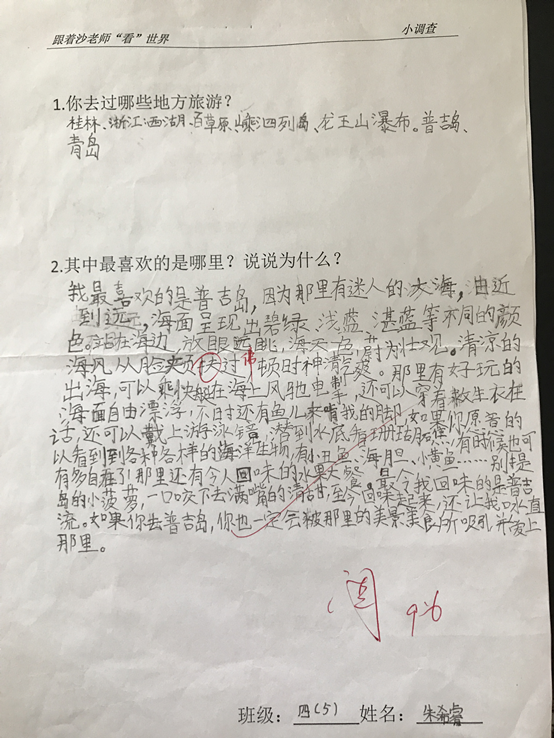 跟着沙老师“看”世界 小调查
1.你去过哪些地方旅游？
桂林、浙江西湖、百草原、嵊泗四列岛、龙王山瀑布。普吉岛、
青岛
2.其中最喜欢的是哪里？说说为什么？
我最喜欢的是普吉岛，因为那里有迷人的大海，由近
到远，海面呈现出碧绿、浅蓝、湛蓝等不同的颜
色。站在海边，放眼远眺，海天一色，蔚为壮观。清凉的
海风从脸夹 讨拂，顿时神清气爽。那里有好玩的
出海，可以乘快艇在海上风驰电掣，还可以穿着救生衣在
海面自由漂浮，不时还有鱼儿来啃我的脚，如果你愿意的
话，还可以戴上游泳镜，潜到水底看珊瑚礁……有时候也可
以看到到各种各样的海洋生物，有小丑鱼、海胆、小黄鱼……别提
有多自在了！那里还有令人回味的水果大餐。最令我回味的是普吉
岛的小菠萝，一口咬下去满嘴的清甘，至今回味起来，还让我口水直
流。如果你去普吉岛，你也一定会被那里的美景美食所吸引并爱上
那里。
阅 96
班级：四(5) 姓名：朱希睿